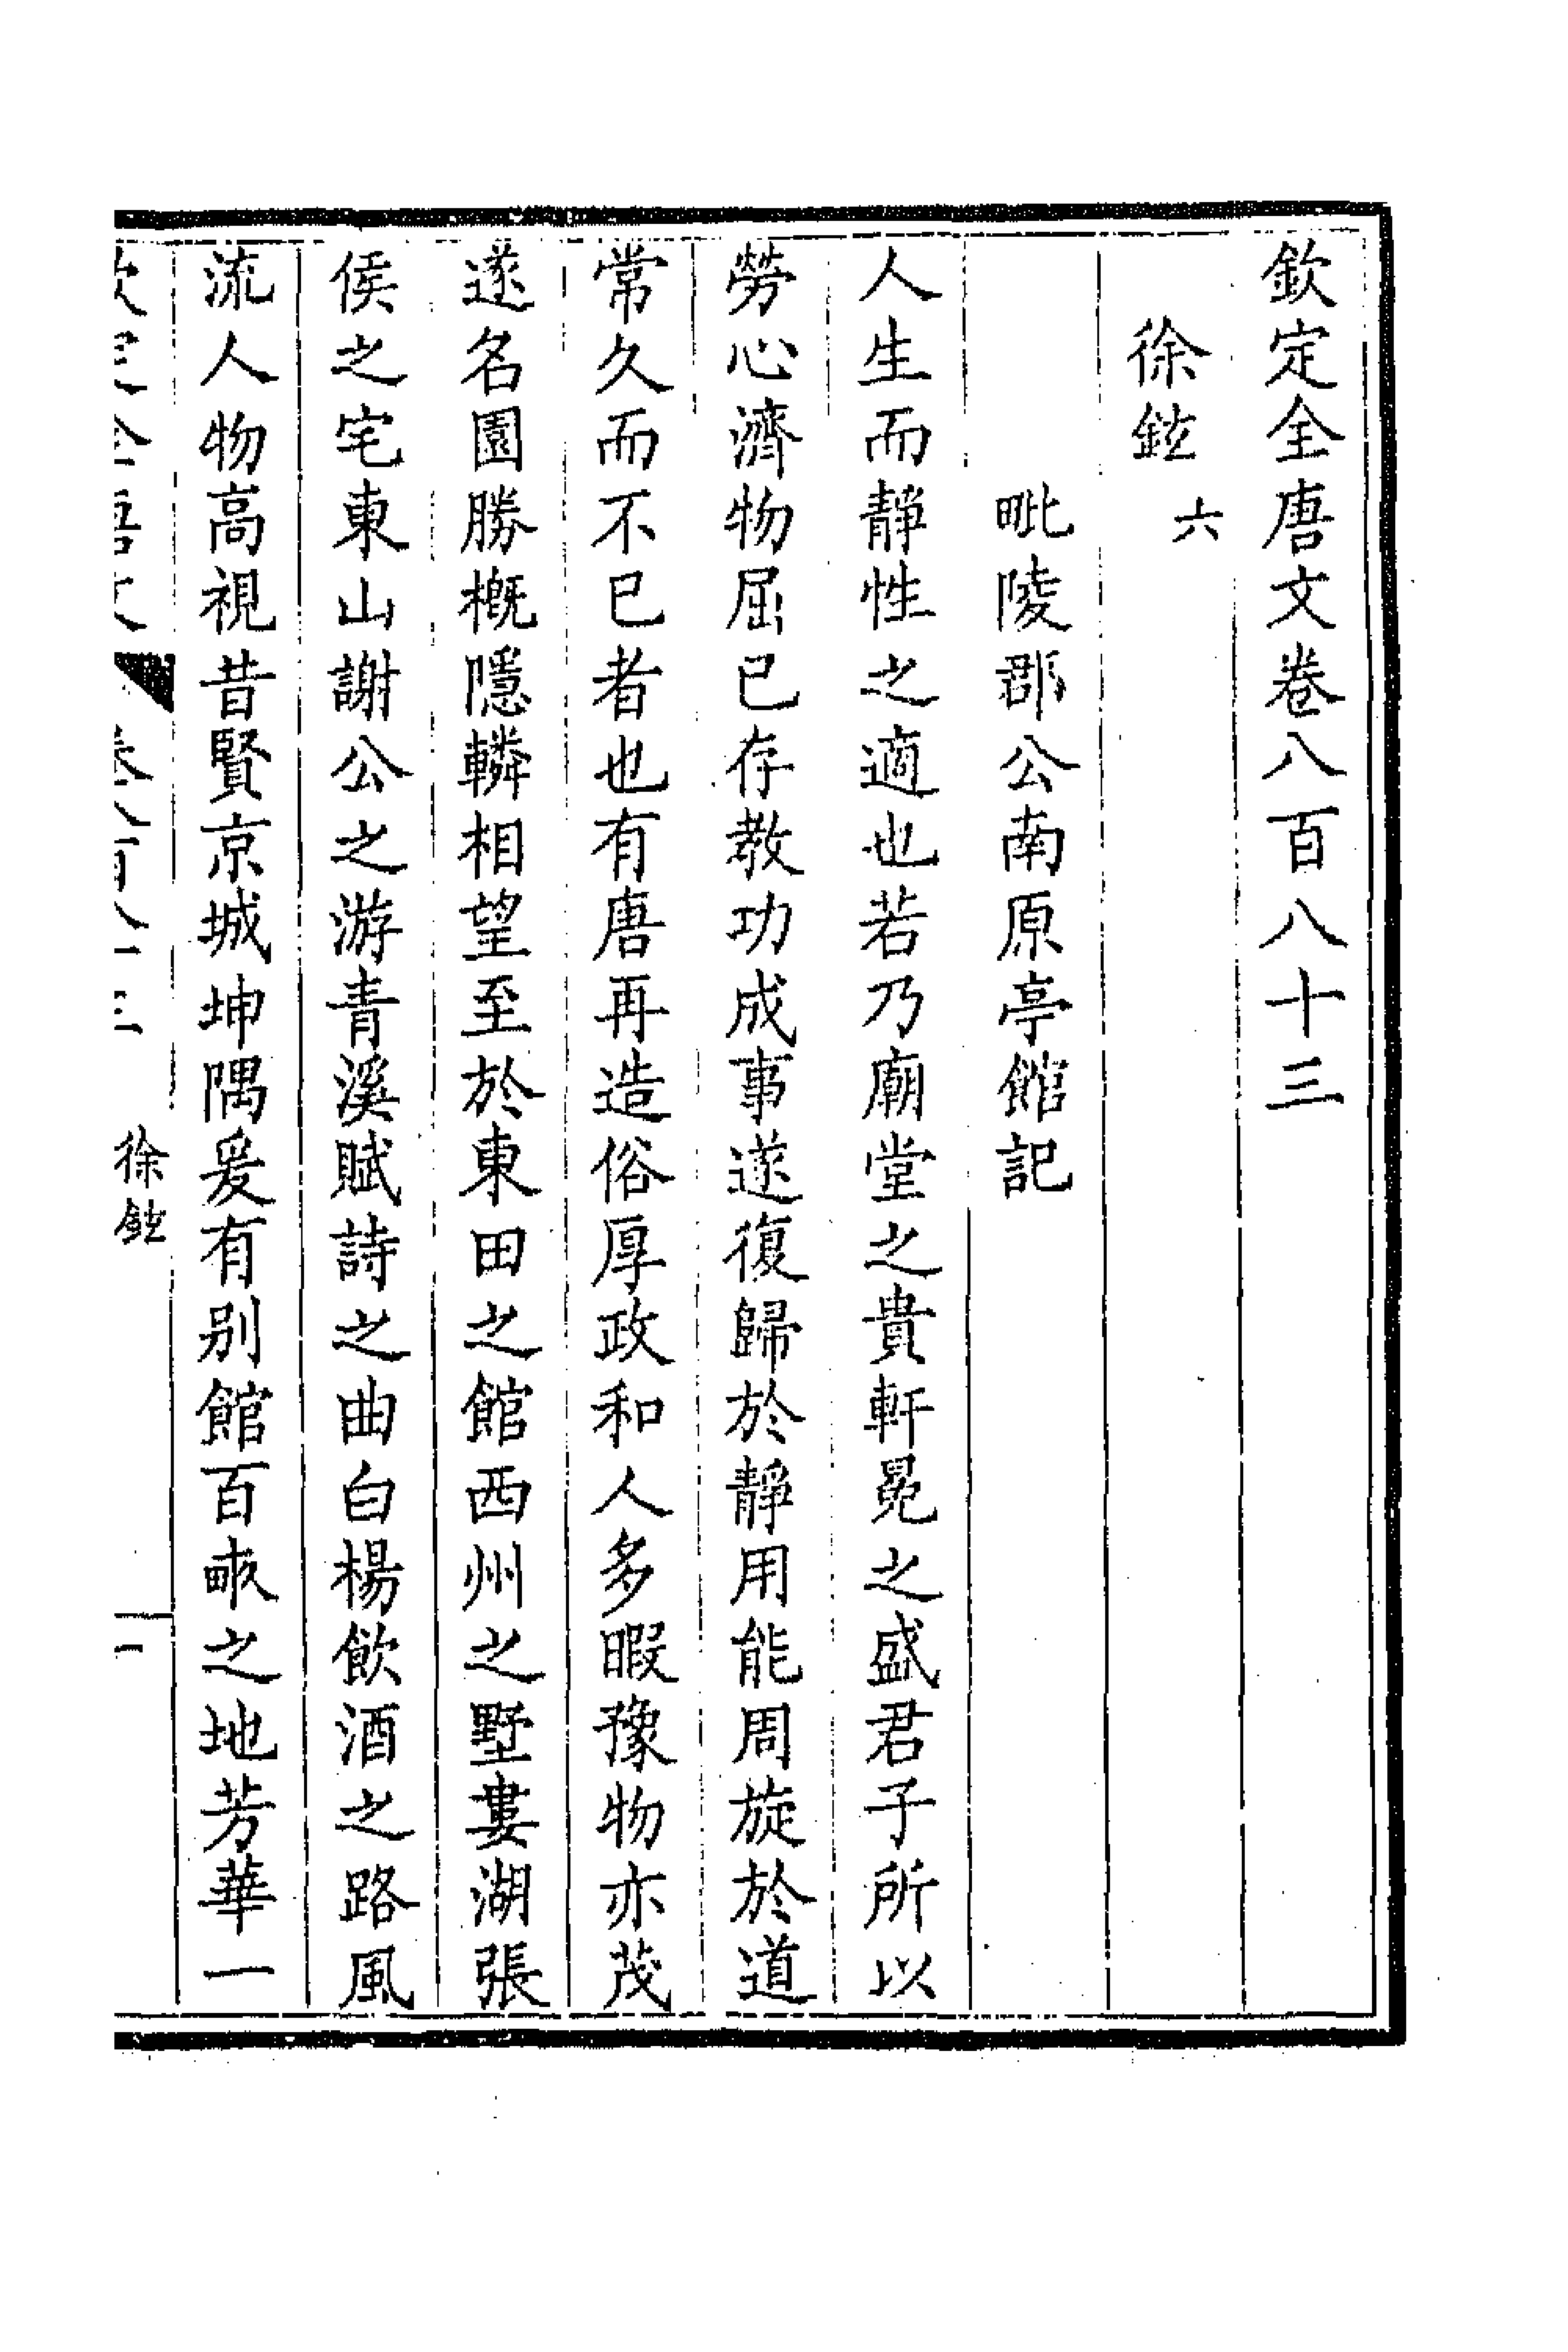 欽定全唐文卷八百八十三
徐鉉六
毗陵郡公南原亭館記
人生而靜性之適也若乃廟堂之貴軒冕之盛君子所以
勞心濟物屈已存教功成事遂復歸於靜用能周旋於道
常久而不已者也有唐再造俗厚政和人多暇豫物亦茂
遂名園勝槪隱轔相望至於東田之館西州之墅婁湖張
侯之宅東山謝公之游青溪賦詩之曲白楊飲酒之路風
流人物高視昔賢京城坤隅爰有别館百畝之地芳華一
欽定全唐文 卷八百八十三 徐鉉 一